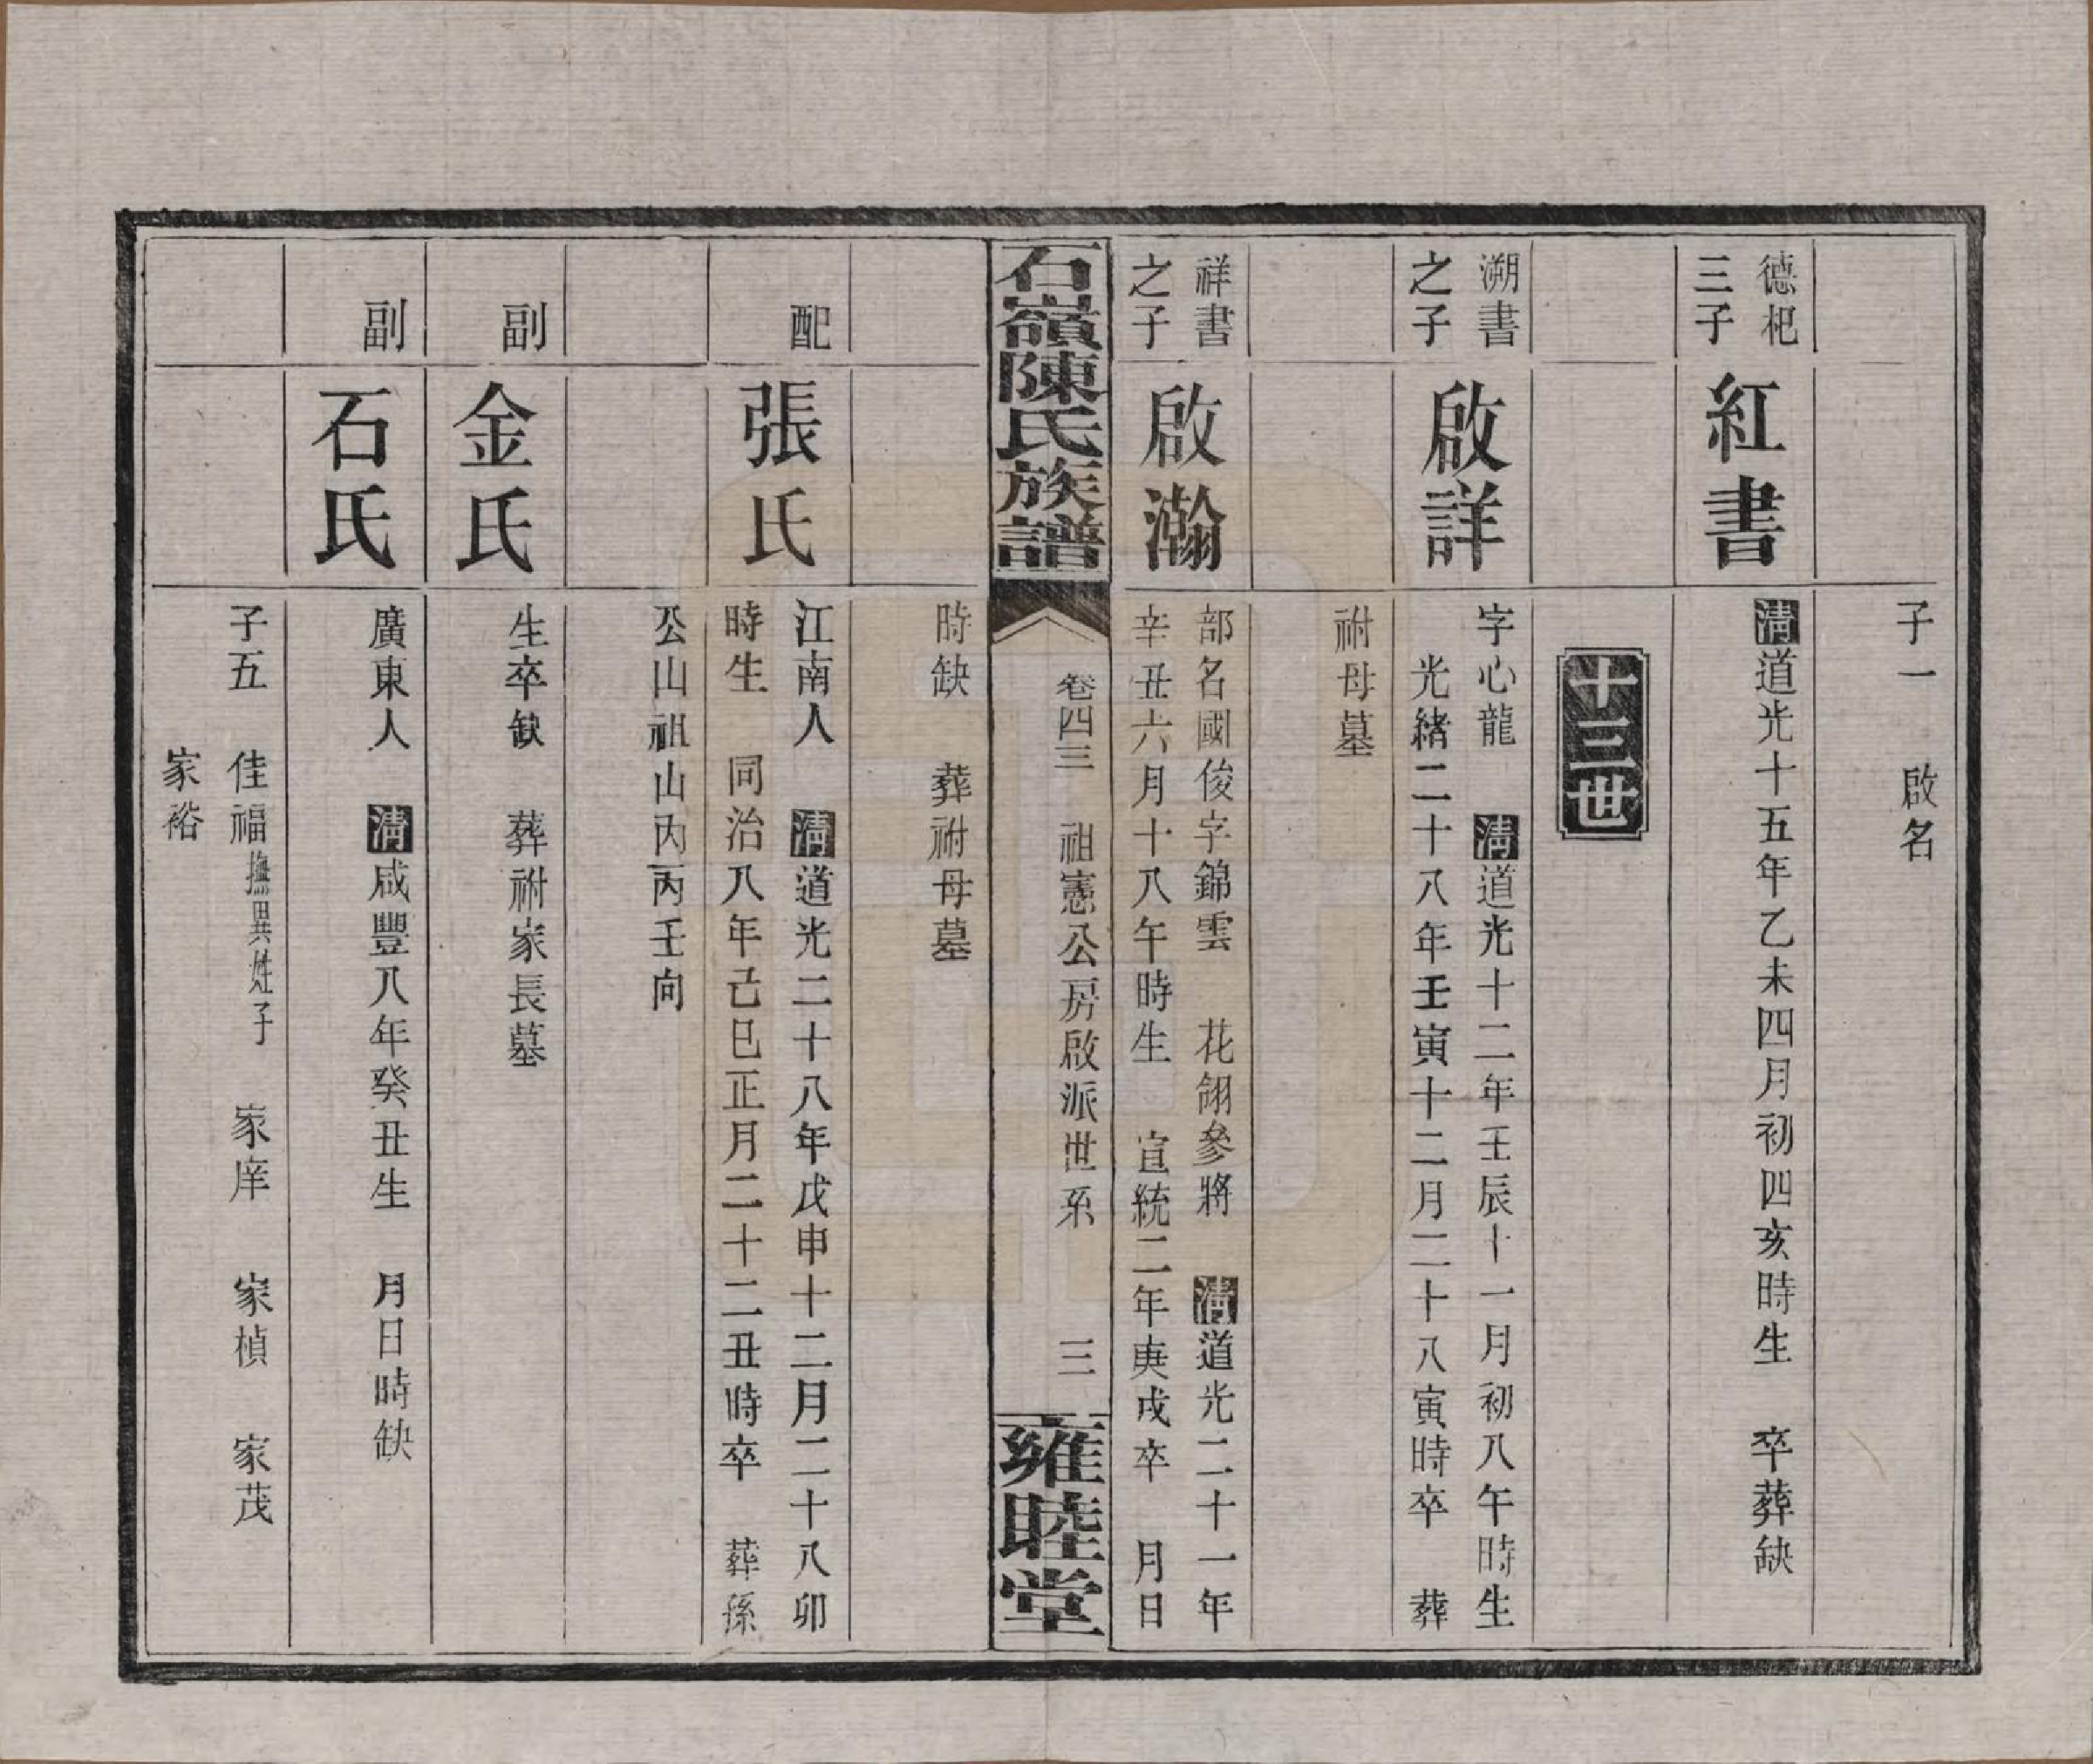 子一　啟名
德杷
三子
紅書
清道光十五年乙未四月初四亥時生　卒葬缺
十三世
溯書
之子
啟詳
字心龍　清道光十二年壬辰十一月初八午時生
光緒二十八年壬寅十二月二十八寅時卒　葬
祔母墓
祥書
之子
啟瀚
部名國俊字錦雲　花翎參將　清道光二十一年
辛丑六月十八午時生　宣統二年庚戌卒　月日
石嶺陳氏族譜
卷四三　祖憲公房啟派世系　三
雍睦堂
時缺　葬祔母墓
配
張氏
江南人　清道光二十八年戊申十二月二十八卯
時生　同治八年己巳正月二十二丑時卒　葬孫
公山祖山內丙壬向
副
金氏
生卒缺　葬祔家長墓
副
石氏
廣東人　清咸豐八年癸丑生　月日時缺
子五　佳福撫異姓子　家庠　家楨　家茂
家裕